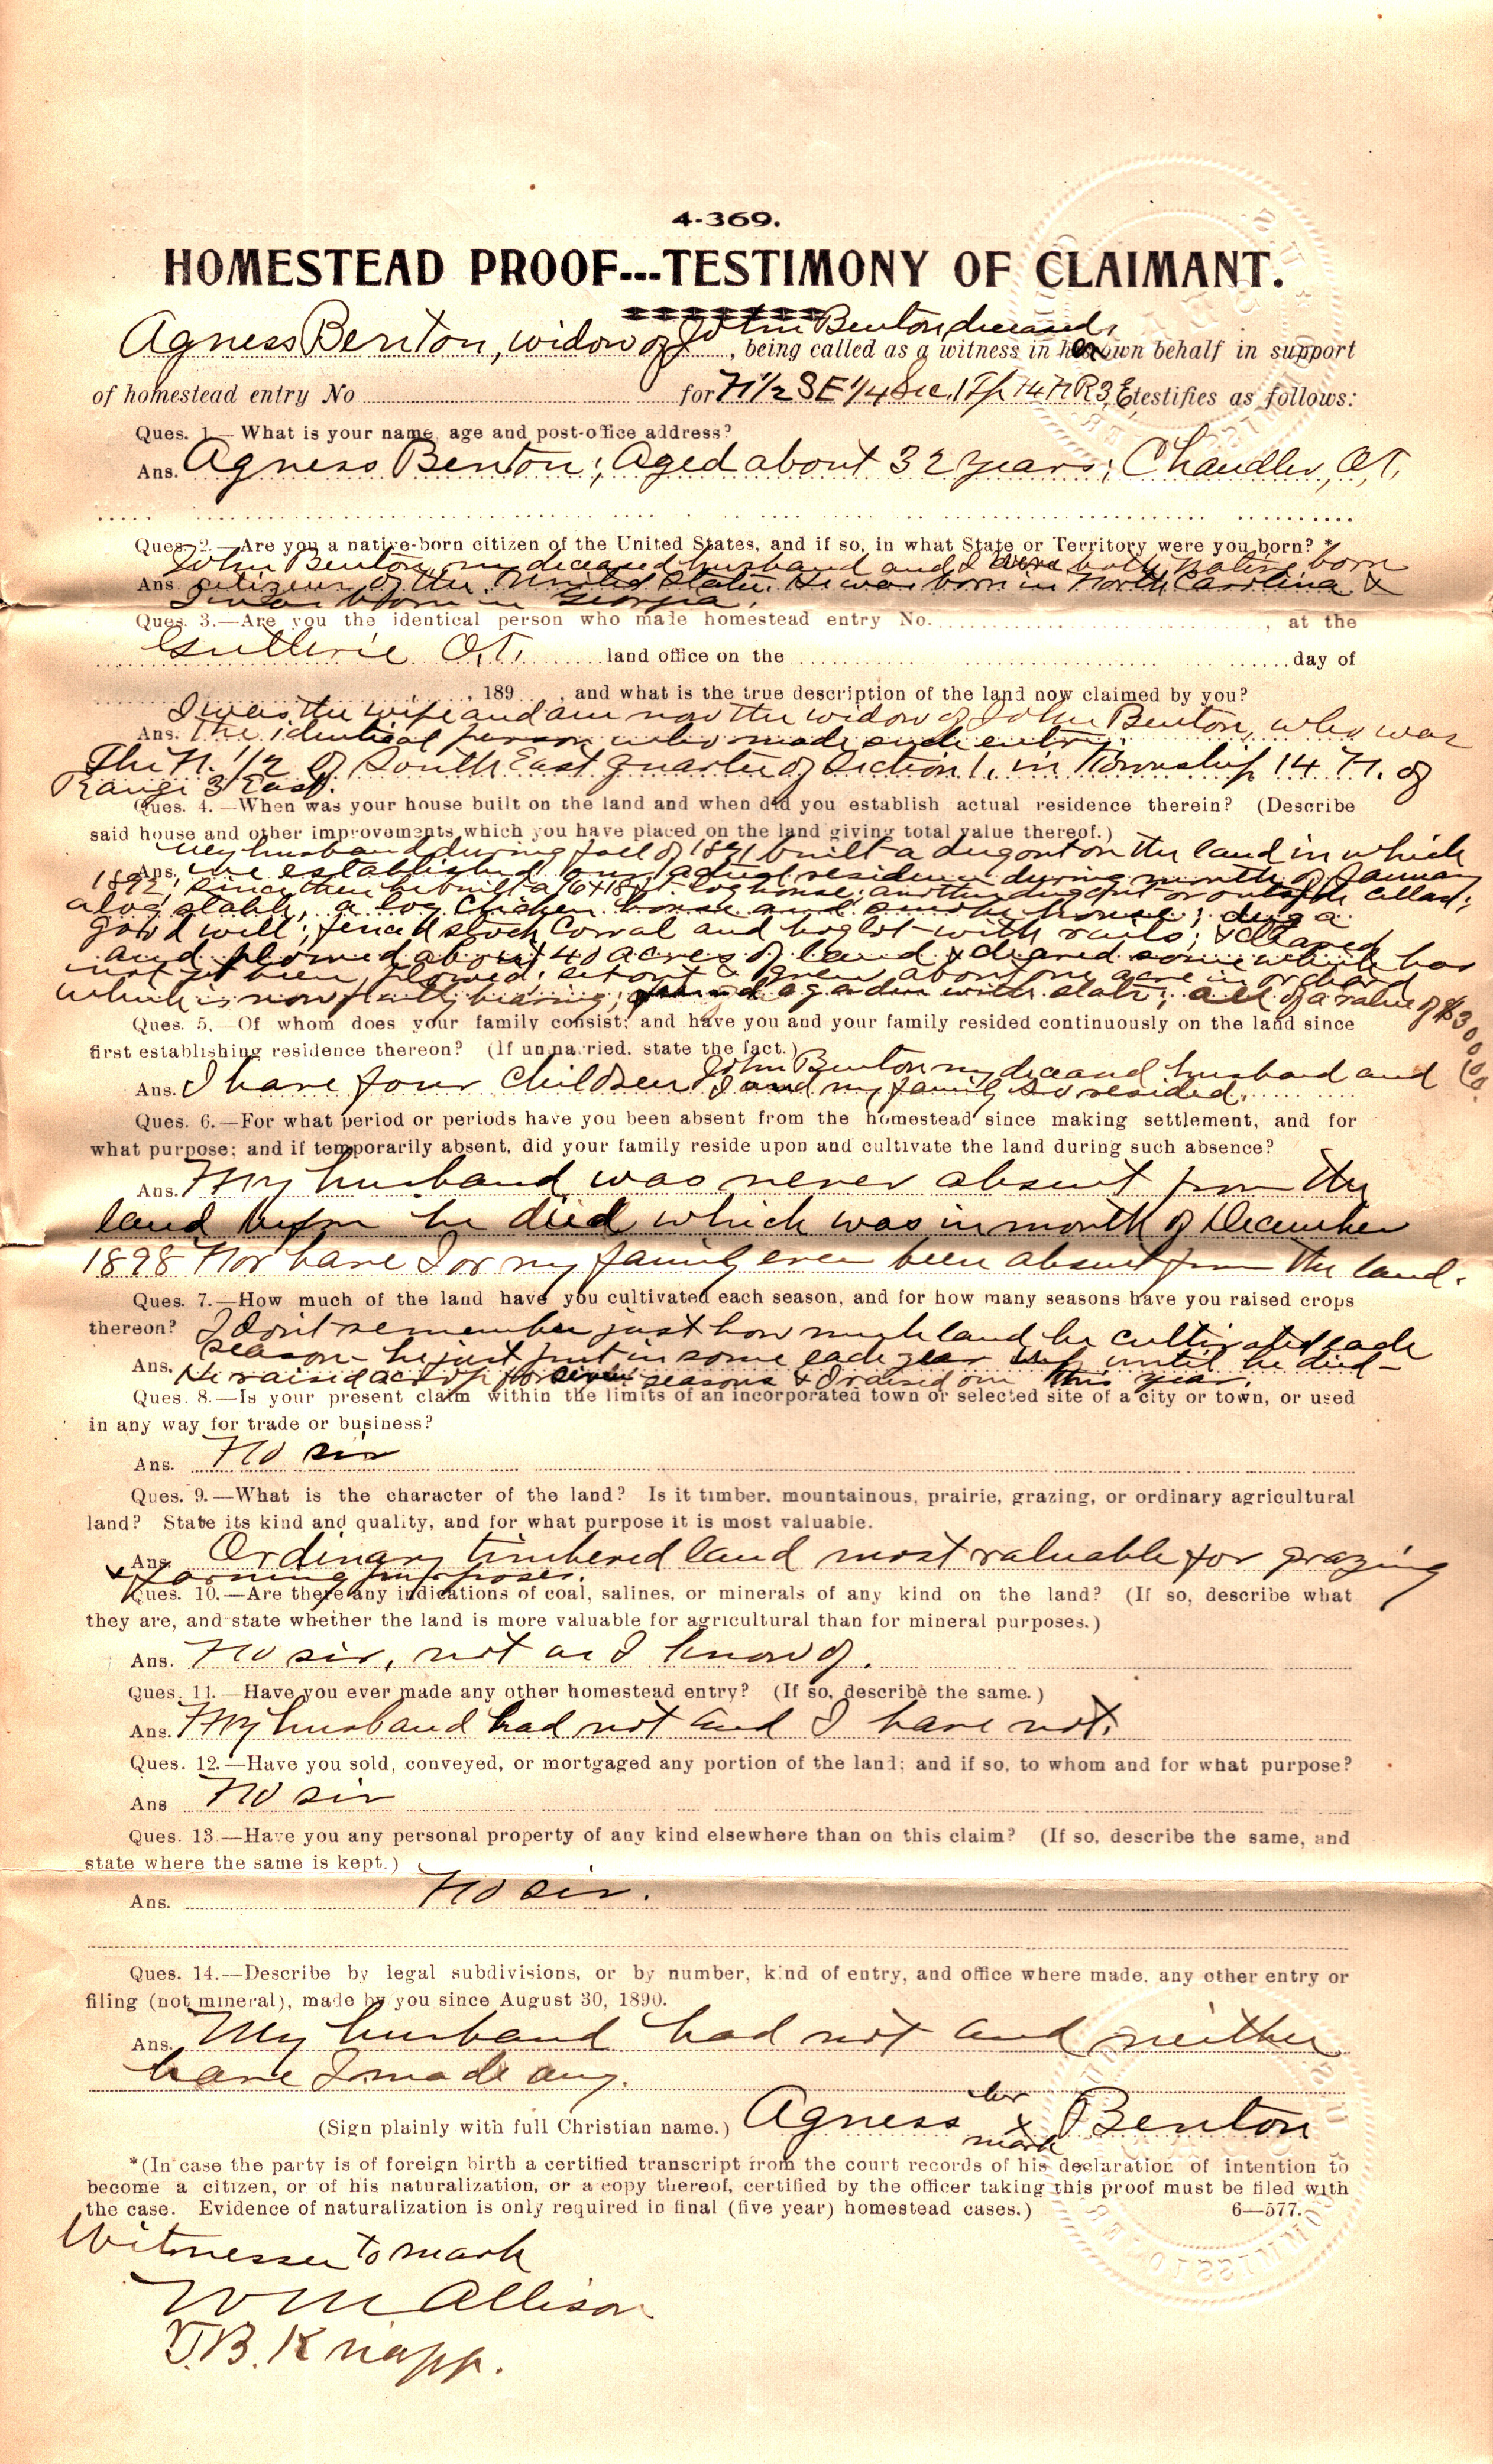 4-369.
HOMESTEAD PROOF---TESTIMONY OF CLAIMANT.
Agness Benton, widow of John Benton deceased, being called as a witness in her own behalf in support
of homestead entry No for N 1/2 SE 1/4 Sec. 1 Tp 14 N R 3 E testifies as follows:
Ques. 1.—What is your name, age and post-office address?
Ans. Agness Benton; Aged about 32 years; Chandler, O.T.
Ques. 2.—Are you a native-born citizen of the United States, and if so, in what State or Territory were you born? *
John Benton, my deceased husband and I were both native born
Ans. citizens of the United States. He was born in North Carolina &
I was born in Georgia.
Ques. 3.—Are you the identical person who made homestead entry No. , at the
Guthrie O.T. land office on the day of
, 189 , and what is the true description of the land now claimed by you?
I was the wife and am now the widow of John Benton, who was
Ans. the identical person who made such entry.
The N. 1/2 of South East quarter of Section 1, in Township 14 N. of
Range 3 East.
Ques. 4.—When was your house built on the land and when did you establish actual residence therein? (Describe
said house and other improvements which you have placed on the land giving total value thereof.)
My husband during fall of 1891 built a dugout on the land in which
Ans. we established our actual residence during month of January
1892; since then he built a 16x18 ft. log house; another dugout or outside cellar;
a log stable, a log chicken house and smoke house; dug a
good well; fenced stock corral and hog lot with rails; & cleared
and plowed about 40 acres of land & cleared some which has
not yet been plowed; set out & grew about one acre in orchard
which is now fruit bearing; a garden with slats; all of a value of $300.00.
Ques. 5.—Of whom does your family consist; and have you and your family resided continuously on the land since
first establishing residence thereon? (If unmarried, state the fact.)
John Benton my deceased husband and
Ans. I have four children I and my family so resided.
Ques. 6.—For what period or periods have you been absent from the homestead since making settlement, and for
what purpose; and if temporarily absent, did your family reside upon and cultivate the land during such absence?
Ans. My husband was never absent from the
land before he died which was in month of December
1898 Nor have I or my family ever been absent from the land.
Ques. 7.—How much of the land have you cultivated each season, and for how many seasons have you raised crops
thereon? I don't remember just how much land he cultivated each
Ans. season - he just put in some each year until he died -
He raised a crop for seven seasons & I raised one this year.
Ques. 8.—Is your present claim within the limits of an incorporated town or selected site of a city or town, or used
in any way for trade or business?
Ans. No sir
Ques. 9.—What is the character of the land? Is it timber, mountainous, prairie, grazing, or ordinary agricultural
land? State its kind and quality, and for what purpose it is most valuable.
Ans. Ordinary timbered land most valuable for grazing
& farming purposes.
Ques. 10.—Are there any indications of coal, salines, or minerals of any kind on the land? (If so, describe what
they are, and state whether the land is more valuable for agricultural than for mineral purposes.)
Ans. No sir, not as I know of.
Ques. 11.—Have you ever made any other homestead entry? (If so, describe the same.)
Ans. My husband had not and I have not.
Ques. 12.—Have you sold, conveyed, or mortgaged any portion of the land; and if so, to whom and for what purpose?
Ans No sir
Ques. 13.—Have you any personal property of any kind elsewhere than on this claim? (If so, describe the same, and
state where the same is kept.)
Ans. No sir.
Ques. 14.—Describe by legal subdivisions, or by number, kind of entry, and office where made, any other entry or
filing (not mineral), made by you since August 30, 1890.
Ans. My husband had not and neither
have I made any.
her
(Sign plainly with full Christian name.) Agness x Benton
mark
*(In case the party is of foreign birth a certified transcript from the court records of his declaration of intention to
become a citizen, or of his naturalization, or a copy thereof, certified by the officer taking this proof must be filed with
the case. Evidence of naturalization is only required in final (five year) homestead cases.) 6—577.
Witnesses to mark
W M Allison
J.B. Knapp.